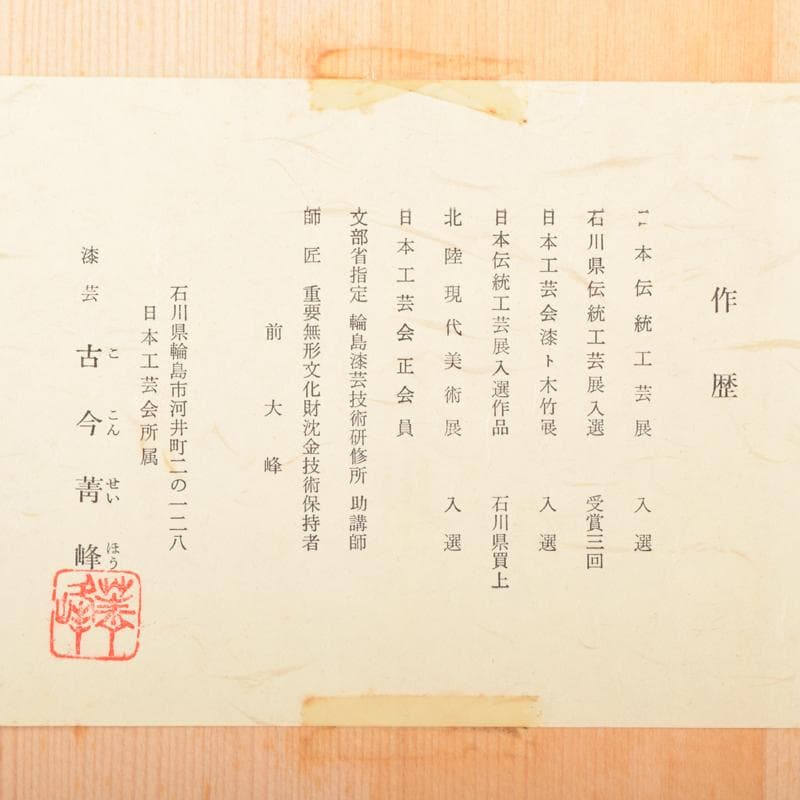 作歴
日本伝統工芸展 入選
石川県伝統工芸展入選 受賞三回
日本工芸会漆ト木竹展 入選
日本伝統工芸展入選作品 石川県買上
北陸現代美術展 入選
日本工芸会正会員
文部省指定 輪島漆芸技術研修所 助講師
師匠 重要無形文化財沈金技術保持者
前大峰
石川県輪島市河井町二の一二八
日本工芸会所属
漆芸 古今菁峰
ここんせいほう
菁峰